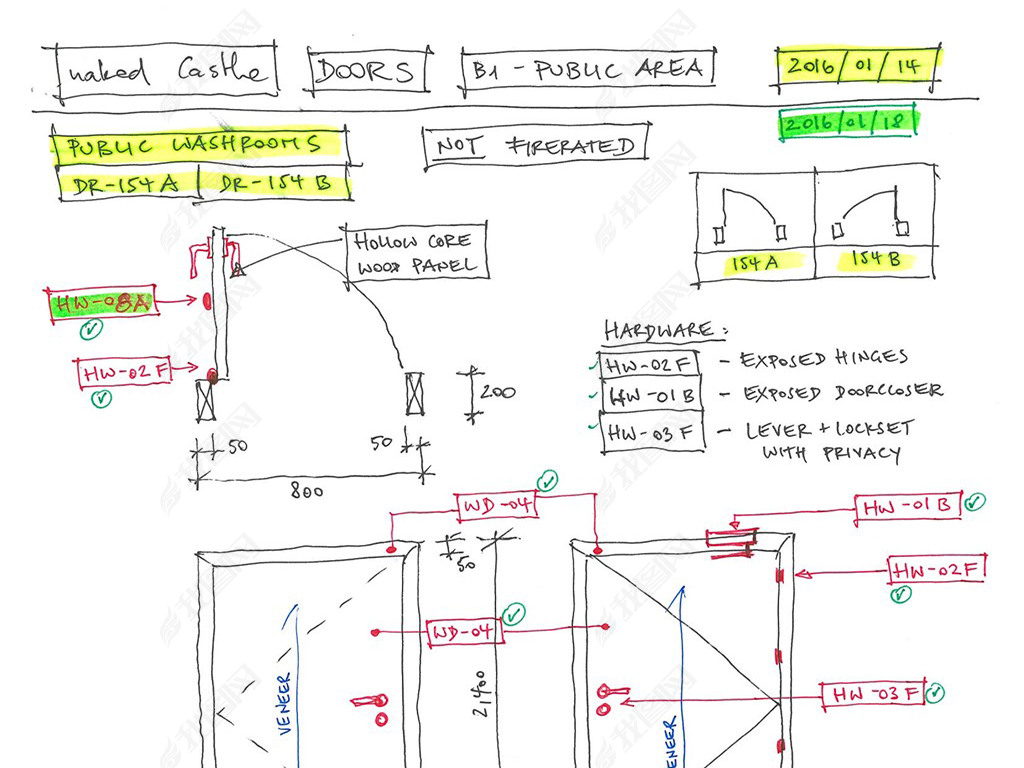 naked Castle
DOORS
B1 - PUBLIC AREA
2016/01/14
2016/01/18
PUBLIC WASHROOMS
DR-154A
DR-154B
NOT FIRERATED
154A
154B
HOLLOW CORE
WOOD PANEL
HW-08A
HW-02F
HARDWARE:
HW-02F - EXPOSED HINGES
HW-01B - EXPOSED DOORCLOSER
HW-03F - LEVER + LOCKSET
WITH PRIVACY
200
50
50
800
WD-04
HW-01B
50
HW-02F
WD-04
2100
HW-03F
VENEER
VENEER